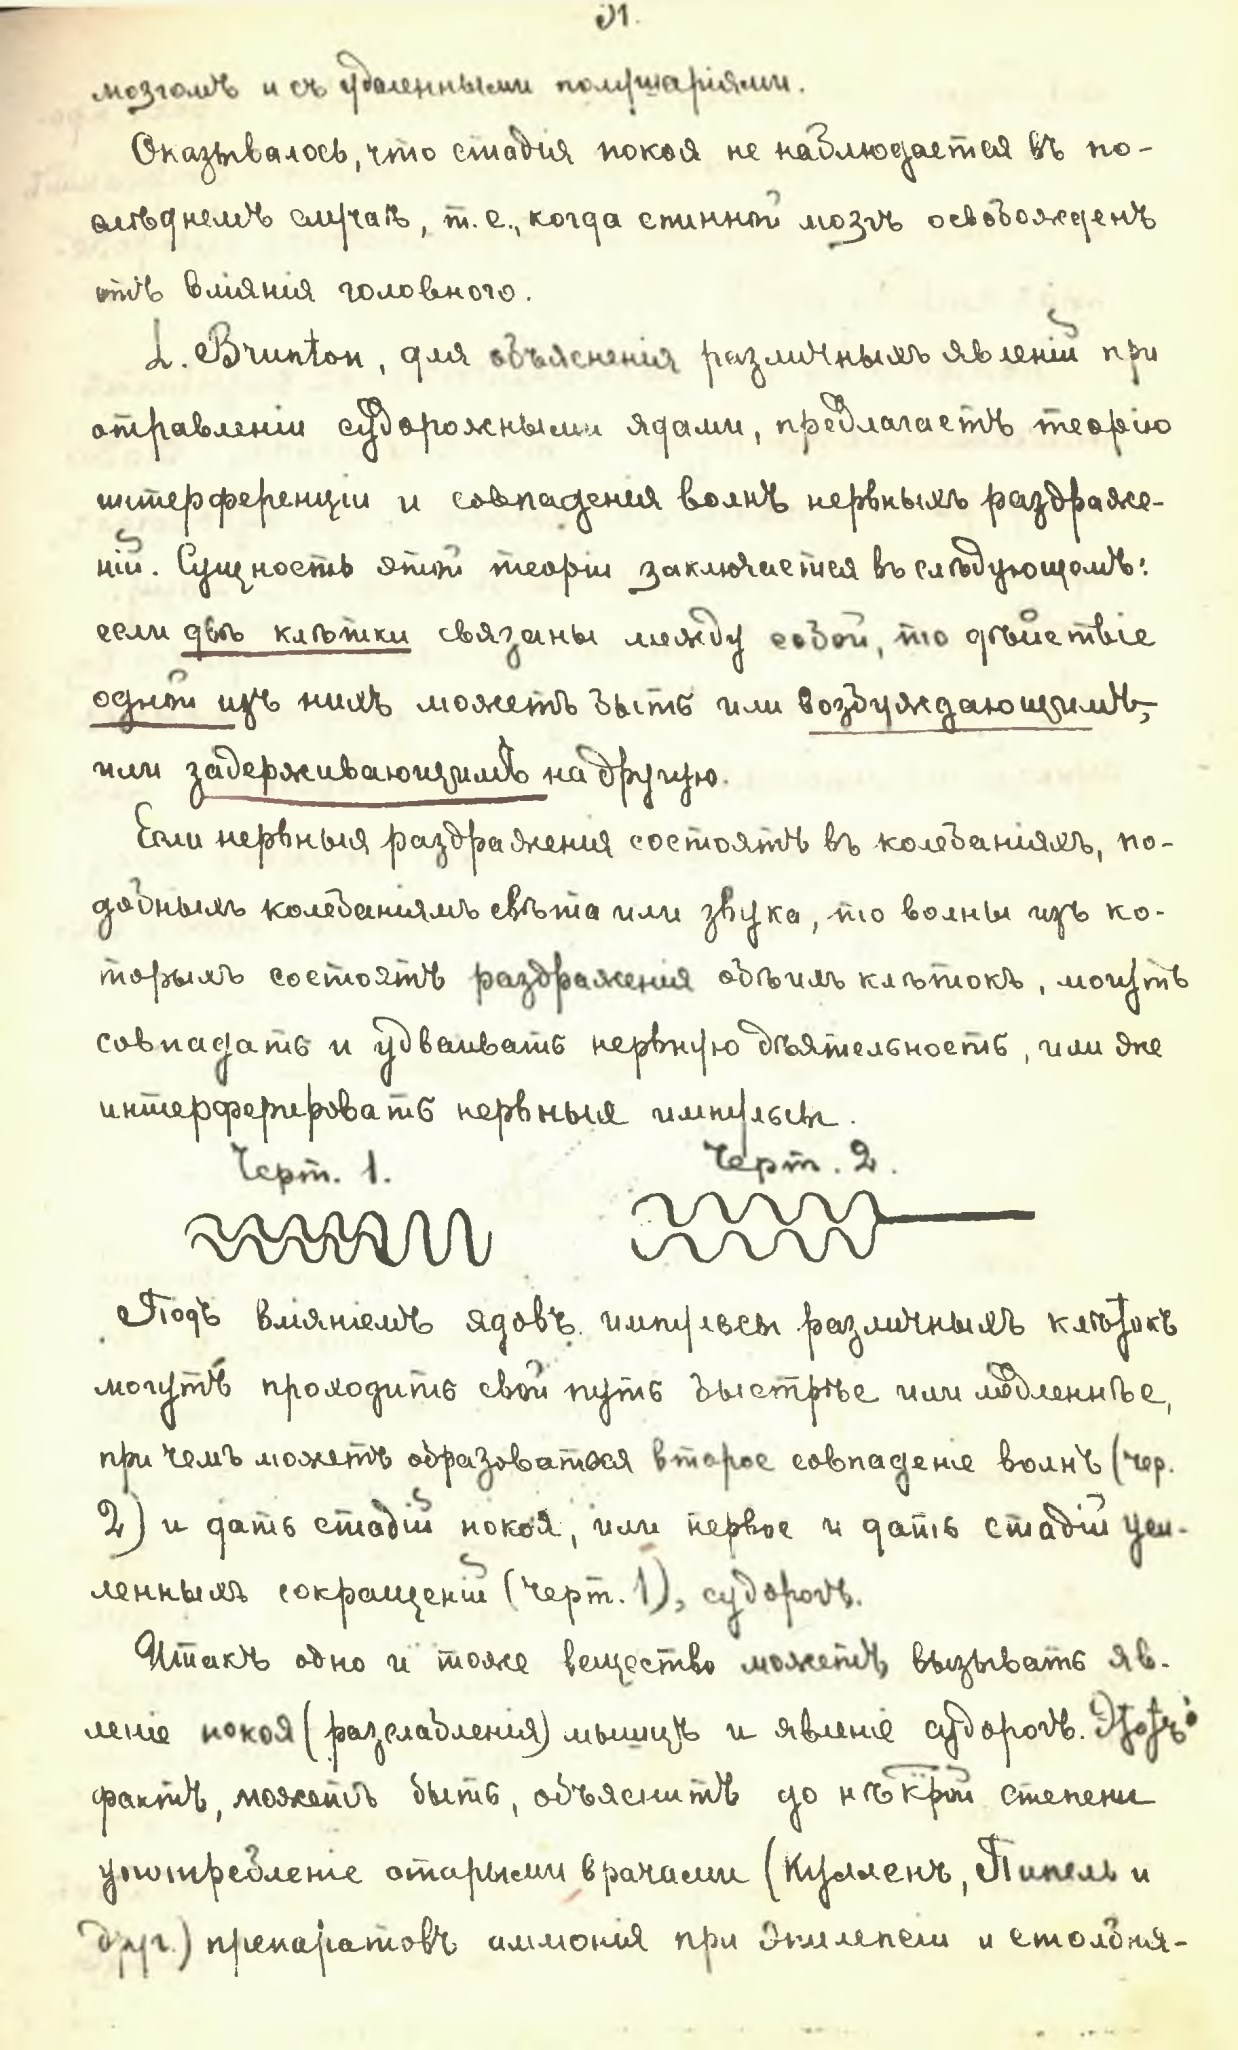 31.
мозгомъ и съ удаленными полушаріями.
Оказывалось, что стадія покоя не наблюдается въ по-
слѣднемъ случаѣ, т. е., когда спинной мозгъ освобожденъ
отъ вліянія головного.
L. Brunton, для объясненія различныхъ явленій при
отравленіи судорожными ядами, предлагаетъ теорію
интерференціи и совпаденія волнъ нервныхъ раздраже-
ній. Сущность этой теоріи заключается въ слѣдующемъ:
если двѣ клѣтки связаны между собой, то дѣйствіе
одной изъ нихъ можетъ быть или возбуждающимъ,
или задерживающимъ на другую.
Если нервныя раздраженія состоятъ въ колебаніяхъ, по-
добныхъ колебаніямъ свѣта или звука, то волны изъ ко-
торыхъ состоятъ раздраженія обѣихъ клѣтокъ, могутъ
совпадать и удваивать нервную дѣятельность, или же
интерферировать нервныя импульсы.
Черт. 1. Черт. 2.
Подъ вліяніемъ ядовъ импульсы различныхъ клѣтокъ
могутъ проходить свой путь быстрѣе или медленнѣе,
при чемъ можетъ образоваться второе совпаденіе волнъ (чер.
2) и дать стадій покоя, или первое и дать стадій уси-
ленныхъ сокращеній (черт. 1), судорогъ.
Итакъ одно и тоже вещество можетъ вызывать яв-
леніе покоя (разслабленія) мышцъ и явленіе судорогъ. Этотъ
фактъ, можетъ быть, объяснитъ до нѣкрой степени
употребленіе старыми врачами (Кулленъ, Пипель и
друг.) препаратовъ аммонія при Эпилепсіи и столбня-